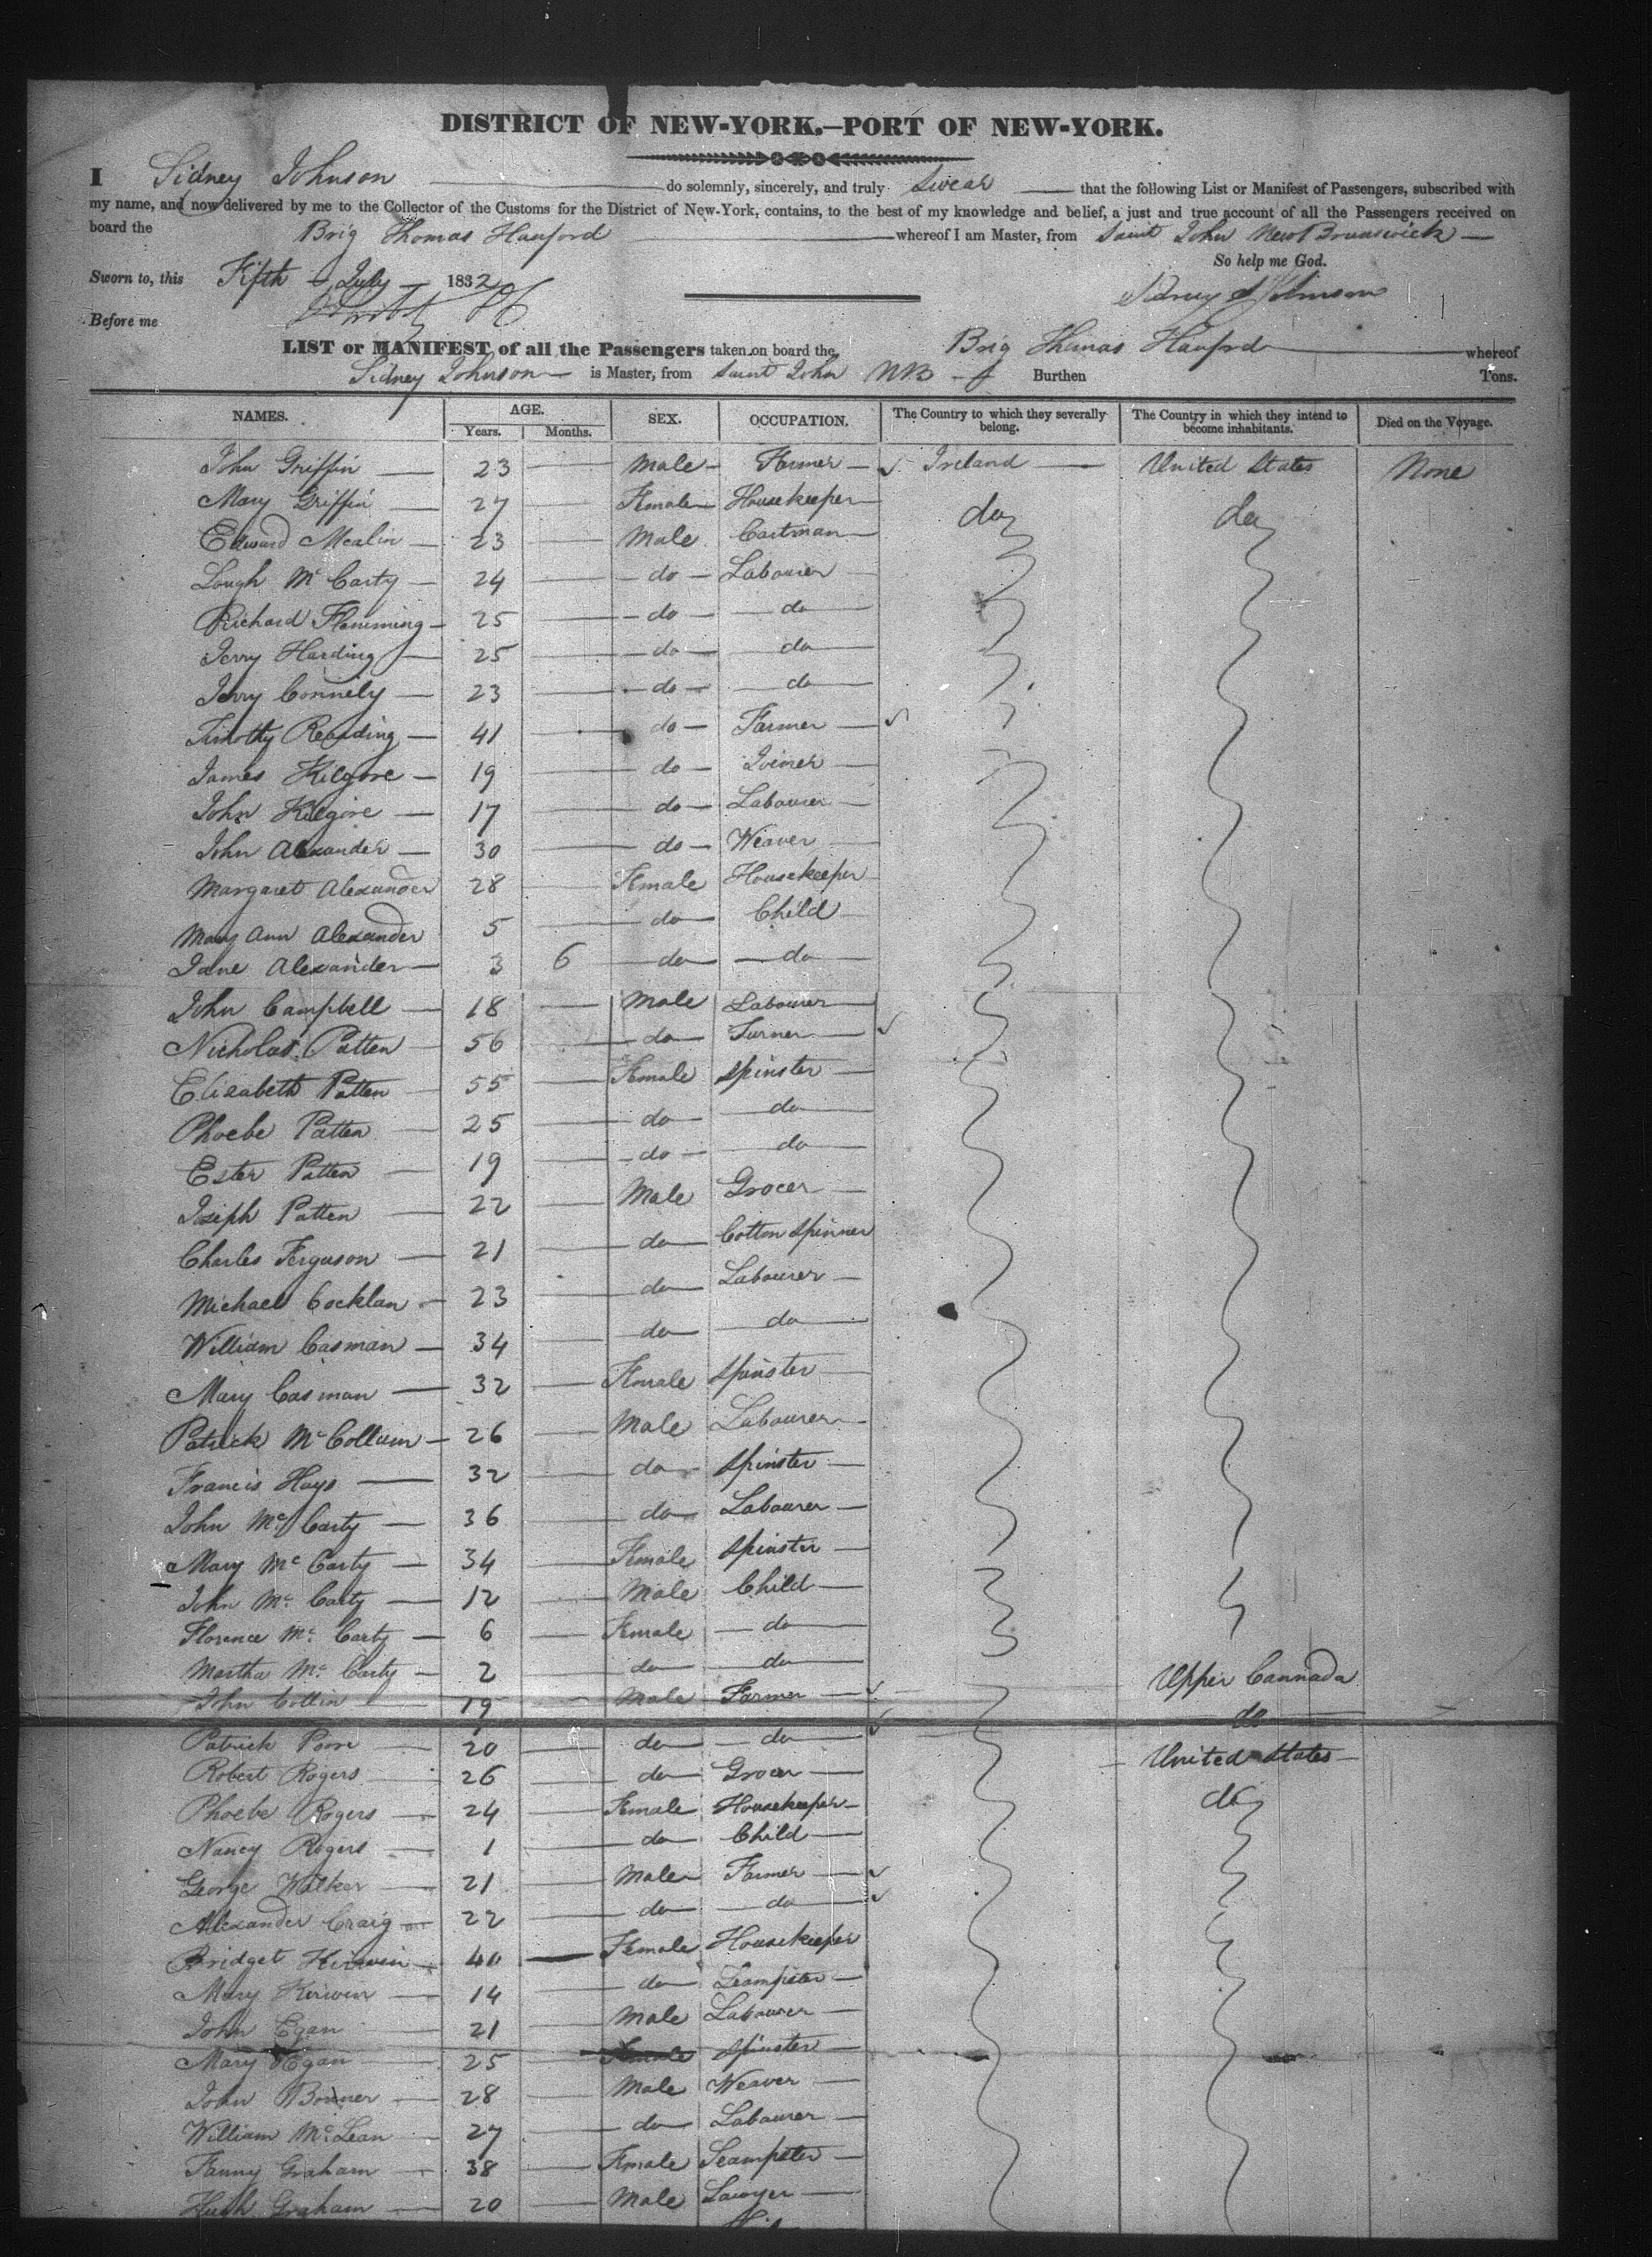 DISTRICT OF NEW-YORK.—PORT OF NEW-YORK.
I Sidney Johnson do solemnly, sincerely, and truly Swear that the following List or Manifest of Passengers, subscribed with
my name, and now delivered by me to the Collector of the Customs for the District of New-York, contains, to the best of my knowledge and belief, a just and true account of all the Passengers received on
board the Brig Thomas Hanford whereof I am Master, from Saint John New Brunswick
So help me God.
Sworn to, this Fifth July 1832
Sidney S Johnson
Before me
LIST or MANIFEST of all the Passengers taken on board the Brig Thomas Hanford whereof
Sidney Johnson is Master, from Saint John NB Burthen Tons.
NAMES. AGE. Years. Months. SEX. OCCUPATION. The Country to which they severally belong. The Country in which they intend to become inhabitants. Died on the Voyage.
John Griffin 23 Male Farmer Ireland United States None
Mary Griffin 27 Female Housekeeper do do
Edward Mealin 23 Male Cartman
Lough Mc Carty 24 do Labourer
Richard Flemming 25 do do
Jerry Harding 25 do do
Jerry Connely 23 do do
Timothy Reading 41 do Farmer
James Kilgore 19 do Joiner
John Kilgore 17 do Labourer
John Alexander 30 do Weaver
Margaret Alexander 28 Female Housekeeper
Mary Ann Alexander 5 do Child
Jane Alexander 3 6 do do
John Campbell 18 Male Labourer
Nicholas Patten 56 do Turner
Elizabeth Patten 55 Female Spinster
Phoebe Patten 25 do do
Ester Patten 19 do do
Joseph Patten 22 Male Grocer
Charles Ferguson 21 do Cotton Spinner
Michael Cocklan 23 do Labourer
William Casman 34 do do
Mary Casman 32 Female Spinster
Patrick Mc Collum 26 Male Labourer
Francis Hays 32 do Spinster
John Mc Carty 36 do Labourer
Mary Mc Carty 34 Female Spinster
John Mc Carty 12 Male Child
Florence Mc Carty 6 Female do
Martha Mc Carty 2 do do Upper Cannada
John Collin 19 Male Farmer do
Patrick Poor 20 do do
Robert Rogers 26 do Grocer United States
Phoebe Rogers 24 Female Housekeeper do
Nancy Rogers 1 do Child
George Walker 21 Male Farmer
Alexander Craig 22 do do
Bridget Kirwin 40 Female Housekeeper
Mary Kirwin 14 do Seampster
John Egan 21 Male Labourer
Mary Egan 25 Female Spinster
John Bonner 28 Male Weaver
William Mc Lean 27 do Labourer
Fanny Graham 38 Female Seampster
Hugh Graham 20 Male Sawyer